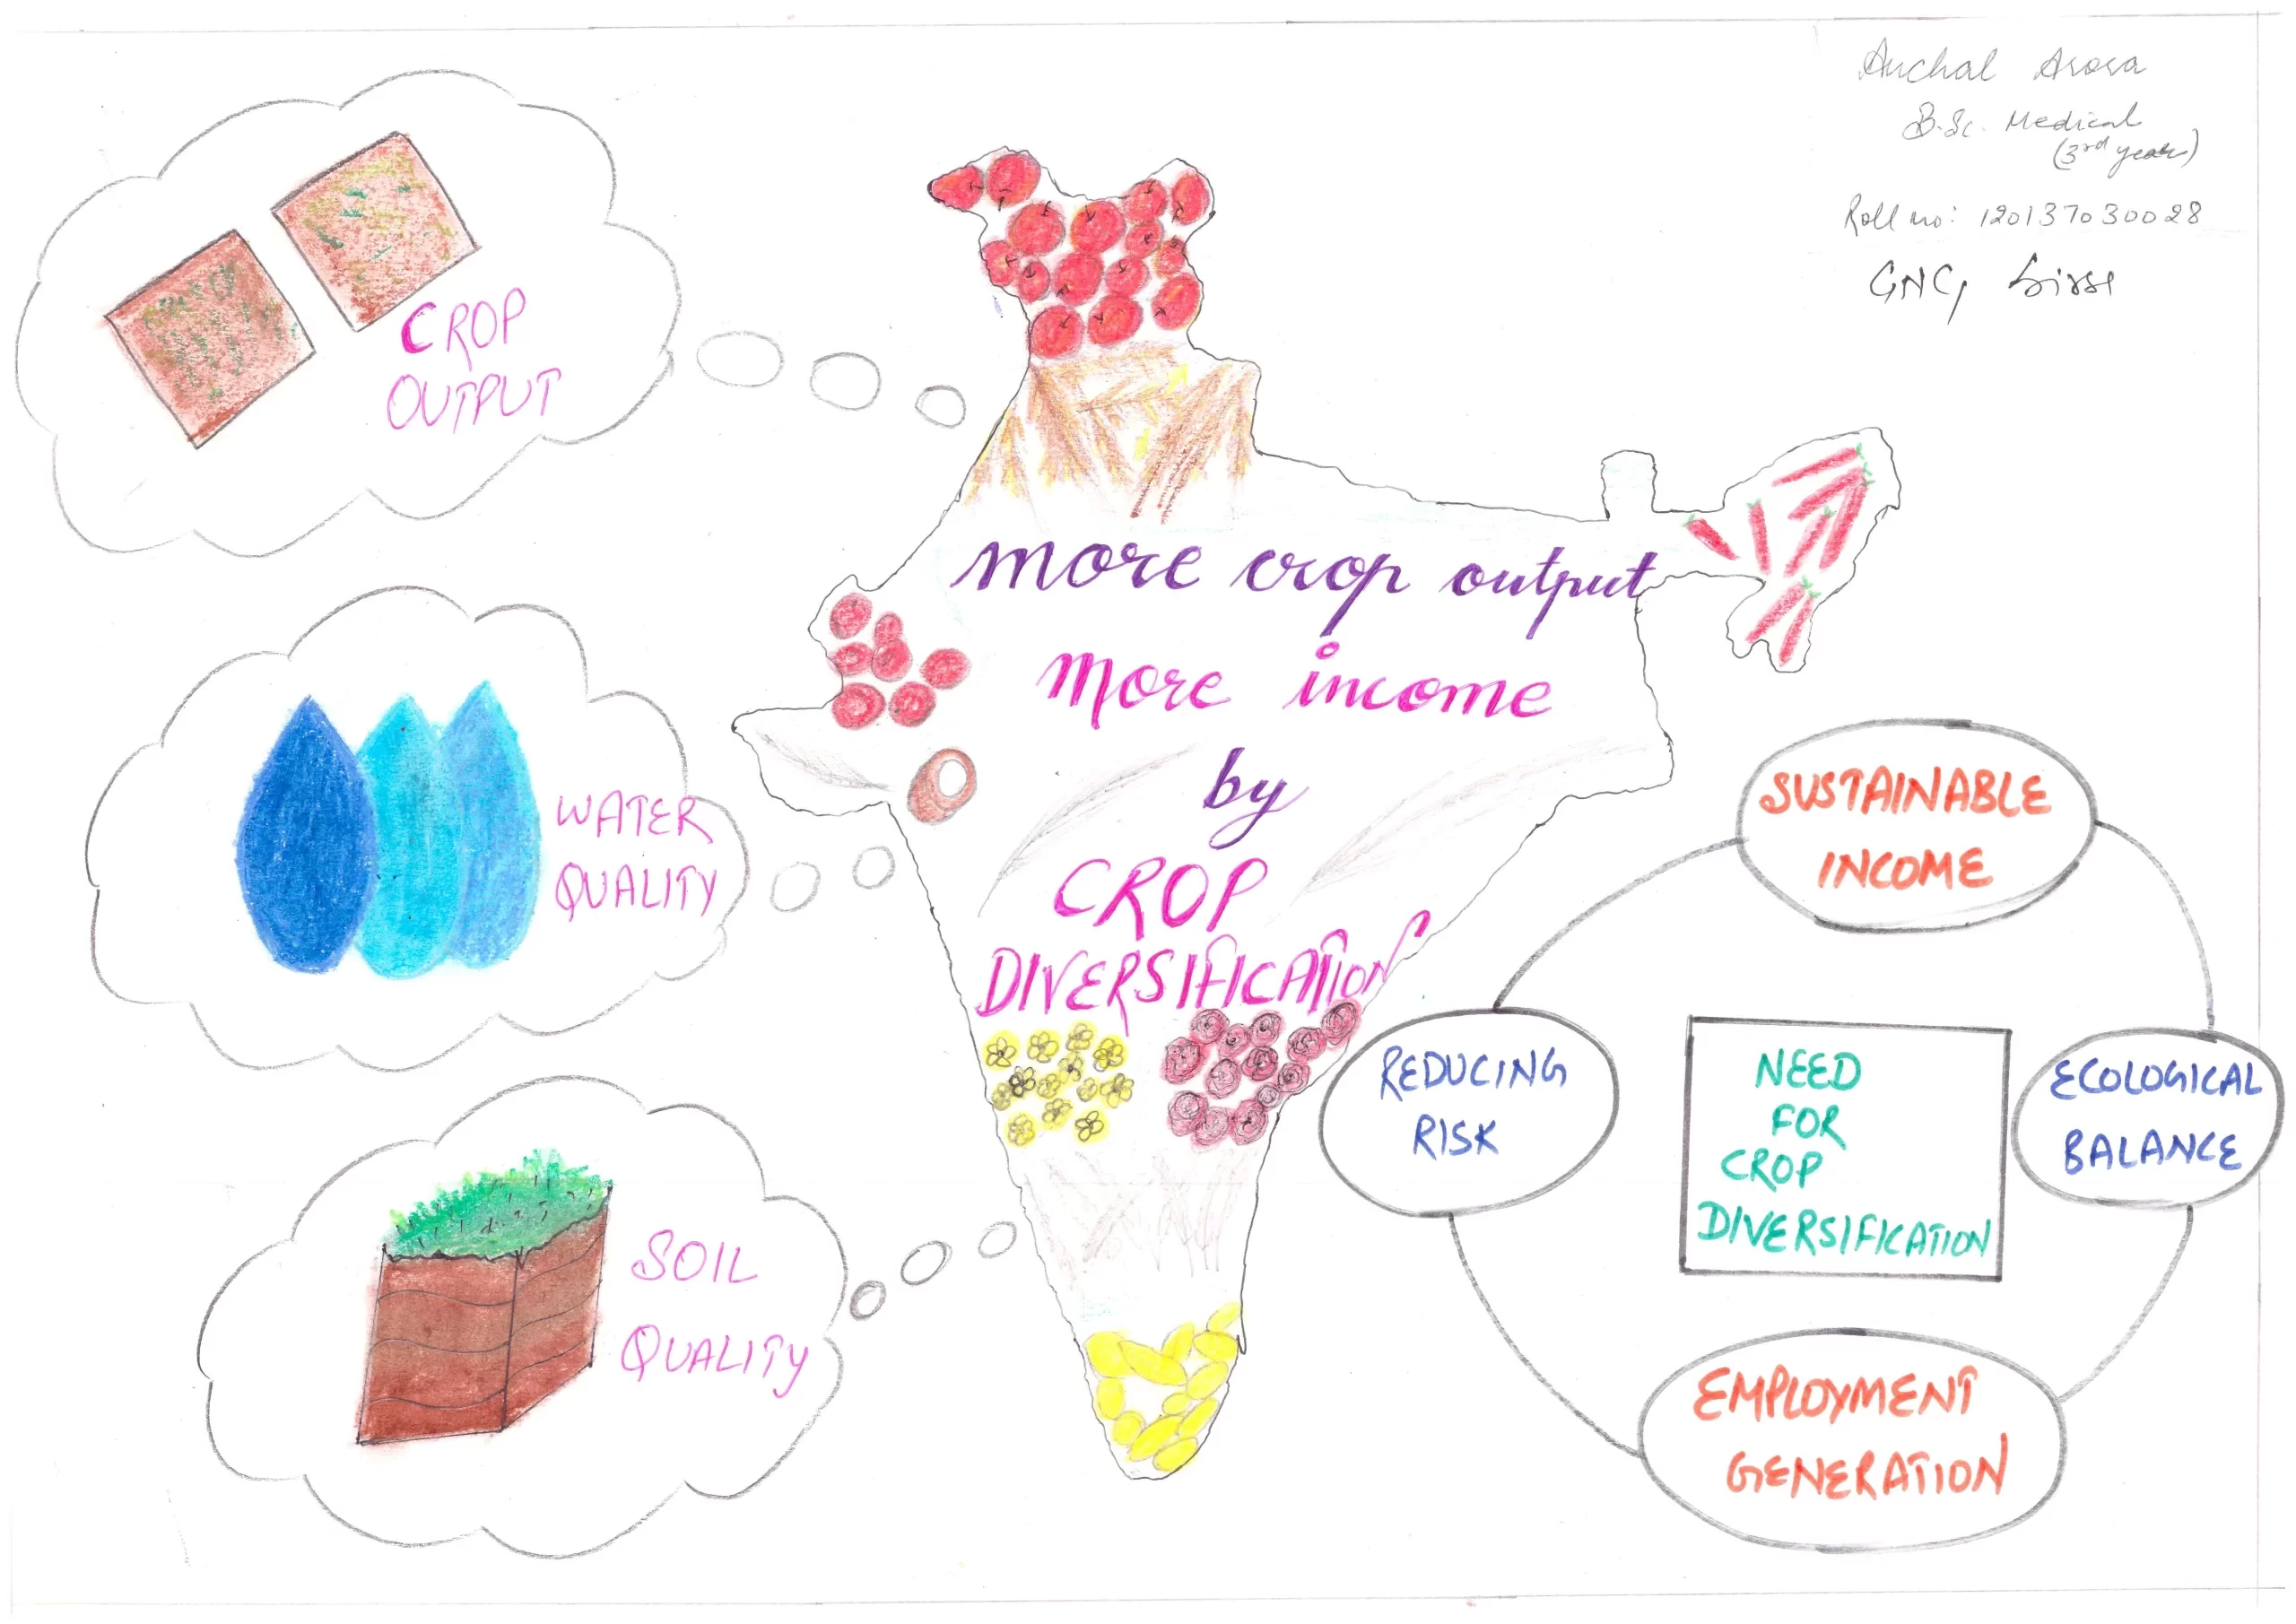 Anchal Arora
B.Sc. Medical
(3rd year)
Roll no: 120137030028
GNC, Sirsa
CROP
OUTPUT
more crop output
More income
by
CROP
DIVERSIFICATION
WATER
QUALITY
SOIL
QUALITY
SUSTAINABLE
INCOME
REDUCING
RISK
NEED
FOR
CROP
DIVERSIFICATION
ECOLOGICAL
BALANCE
EMPLOYMENT
GENERATION